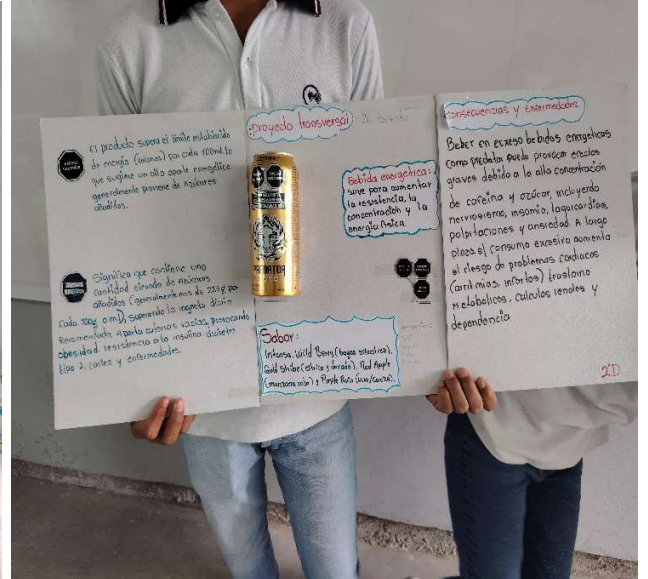 El producto supera el límite establecido
de energía (calorías) por cada 100ml. lo
que sugiere un alto aporte energético
generalmente proviene de azúcares
añadidos.
Significa que contiene una
cantidad elevada de azúcares
añadidos (generalmente mas de
Cada 100g o ml), superando la ingesta diaria
Recomendada, Aporta calorías vacías, provocando
obesidad, resistencia a la insulina, diabetes
tipo 2, caries y enfermedades.
Proyecto transversal
PREDATOR
Bebida energética:
sirve para aumentar
la resistencia, la
concentración y la
energía física.
Sabor:
Intensa, Wild Berry (bayas silvestres),
Gold Strike (cítrico y dorado), Red Apple
(manzana roja) y Purple
Consecuencias y Enfermedades
Beber en exceso bebidas energéticas
como predator puede provocar efectos
graves debido a la alta concentración
de cafeína y azúcar, incluyendo
nerviosismo, insomio, taquicardias,
palpitaciones y ansiedad. A largo
plazo el consumo excesivo aumenta
el riesgo de problemas cardiacos
(arritmias, infartos) trastorno
metabólicos, cálculos renales y
dependencia
2°D